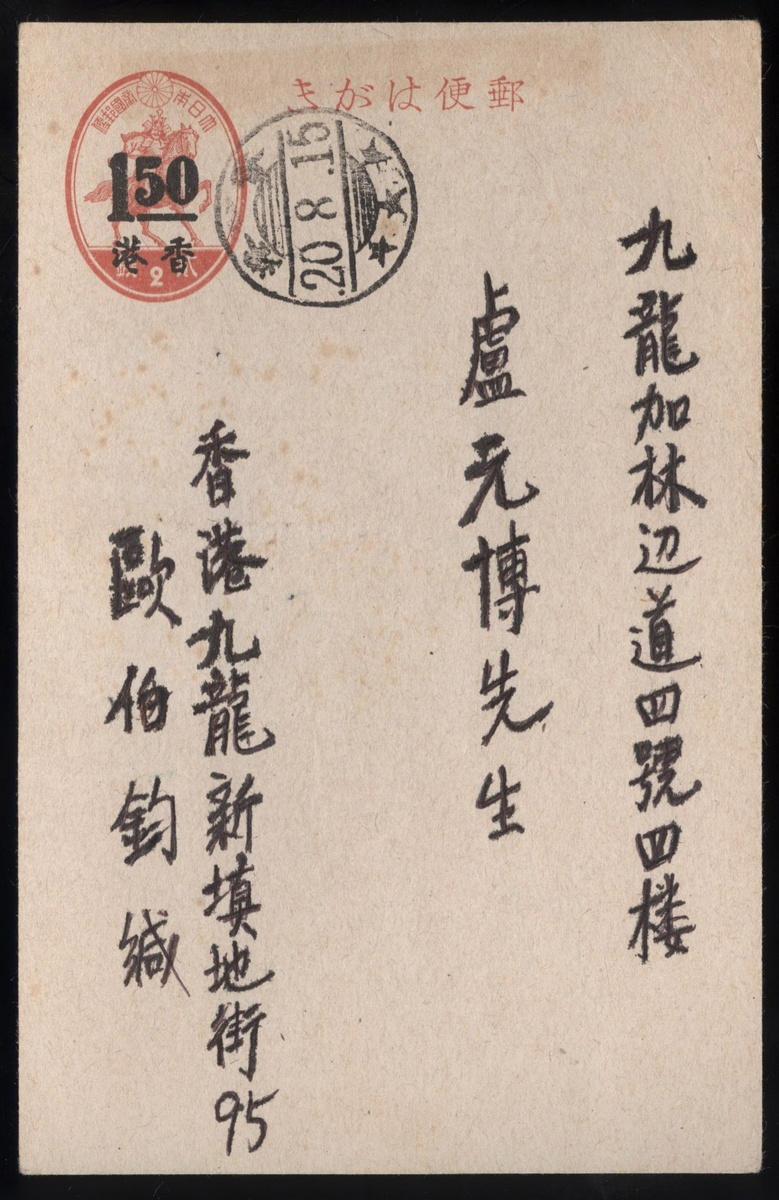 郵便はがき
大日本帝國郵便
1.50
香港
2
20.8.15
九龍加林辺道四號四楼
盧元博先生
香港九龍新填地街95
歐伯鈞緘